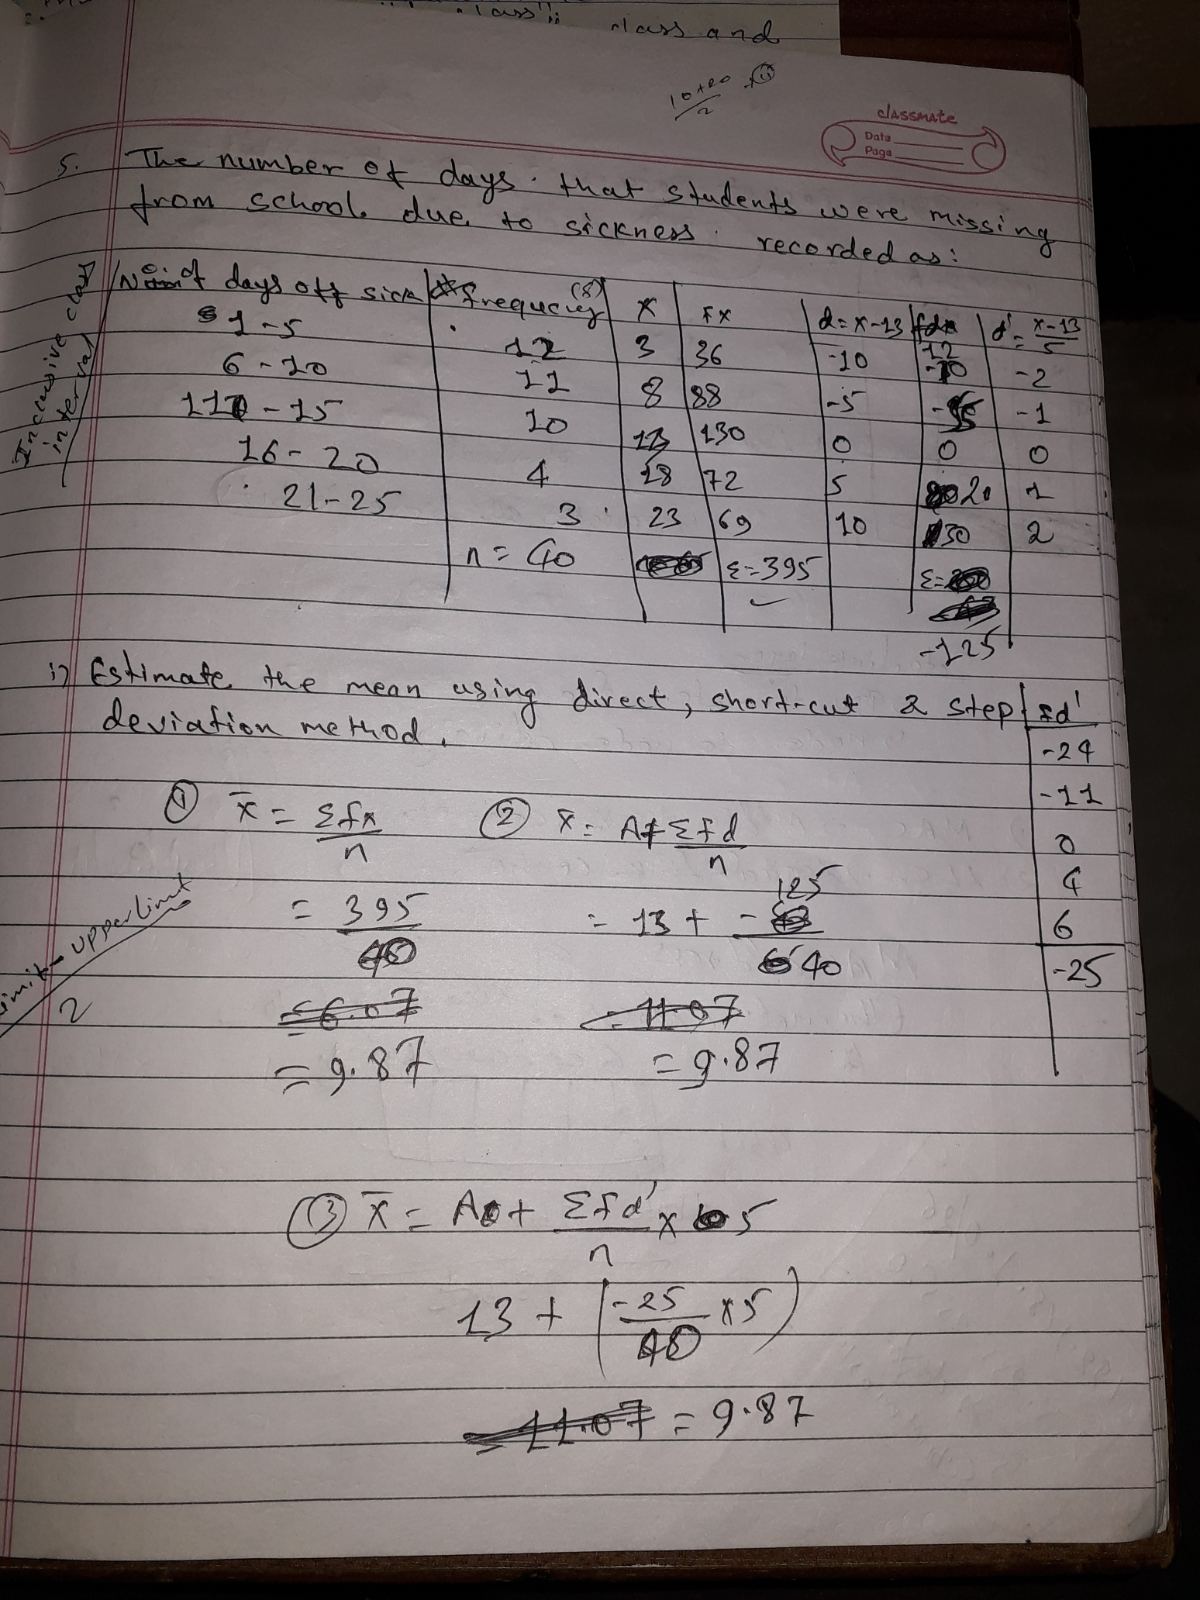 class and
10+20
2
classmate
Date
Page
5. The number of days that students were missing
from school due to sickness recorded as:
Inclusive class
interval
No. of days off sick | frequency (8) | x | fx | d = x-13 | fdx | d' = x-13/5
1-5 | 12 | 3 | 36 | -10 | -2
6-10 | 11 | 8 | 88 | -5 | -1
11-15 | 10 | 13 | 130 | 0 | 0 | 0
16-20 | 4 | 18 | 72 | 5 | 20 | 1
21-25 | 3 | 23 | 69 | 10 | 30 | 2
n = 40 | Σ=395 | Σ=
-125
i) Estimate the mean using direct, short-cut & step
deviation method.
fd'
-24
-11
0
4
6
-25
① x̄ = Σfx
n
= 395
40
= 6.07
= 9.87
② x̄ = A+ Σfd
n
= 13 + -125
40
= 11.07
= 9.87
limit - upper limit
2
③ x̄ = A + Σfd' x 5
n
13 + (-25 x 5)
40
= 11.07 = 9.87